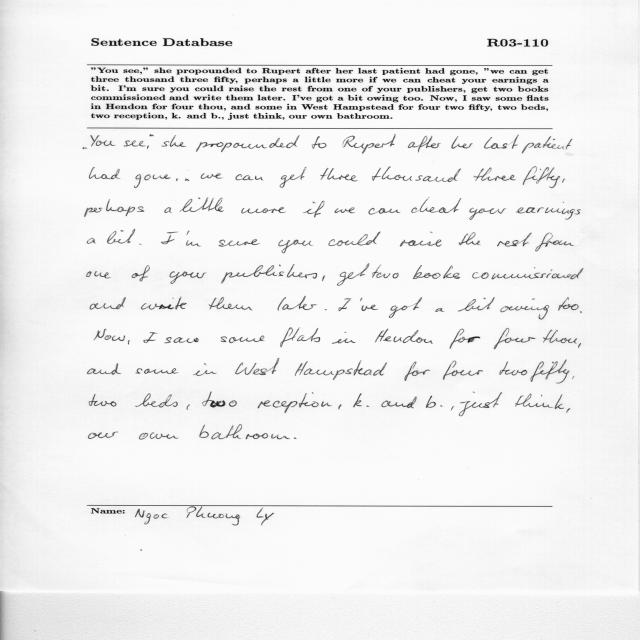 Sentence Database R03-110
"You see," she propounded to Rupert after her last patient had gone, "we can get
three thousand three fifty, perhaps a little more if we can cheat your earnings a
bit. I'm sure you could raise the rest from one of your publishers, get two books
commissioned and write them later. I've got a bit owing too. Now, I saw some flats
in Hendon for four thou, and some in West Hampstead for four two fifty, two beds,
two reception, k. and b., just think, our own bathroom.
„You see," she propounded to Rupert after her last patient
had gone, „ we can get three thousand three fifty,
perhaps a little more if we can cheat your earnings
a bit. I'm sure you could raise the rest from
one of your publishers, get two books commissioned
and write them later. I've got a bit owing too.
Now, I saw some flats in Hendon for four thou,
and some in West Hampstead for four two fifty,
two beds, two reception, k. and b., just think,
our own bathroom.
Name: Ngoc Phuong Ly